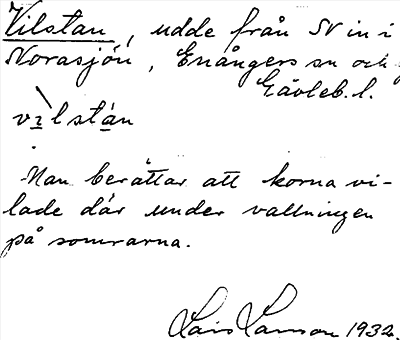 Vilstan, udde från NV in i
Norasjön, Enångers sn och
Gävleb. l.
vılstán
Man berättar att korna vi-
lade där under vallningen
på somrarna.
Lars Larsson 1932.